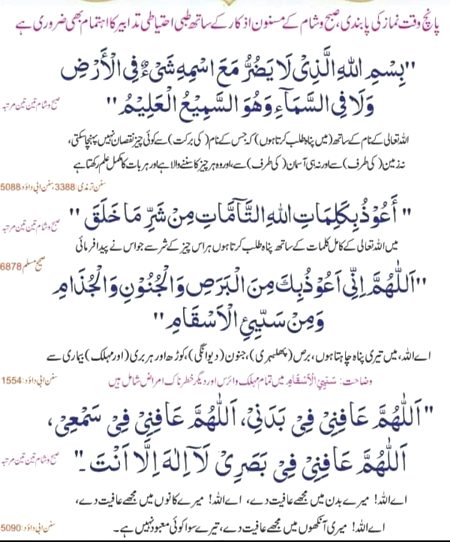 پانچ وقت نماز کی پابندی، صبح و شام کے مسنون اذکار کے ساتھ طبی احتیاطی تدابیر کا اہتمام بھی ضروری ہے
"بِسْمِ اللهِ الَّذِیْ لَا یَضُرُّ مَعَ اسْمِهٖ شَیْءٌ فِی الْاَرْضِ
وَلَا فِی السَّمَآءِ وَهُوَ السَّمِیْعُ الْعَلِیْمُ" صبح و شام تین تین مرتبہ
اللہ تعالی کے نام کے ساتھ (میں پناہ طلب کرتا ہوں) کہ جس کے نام (کی برکت) سے کوئی چیز نقصان نہیں پہنچا سکتی،
نہ زمین (کی طرف) سے اور نہ ہی آسمان (کی طرف) سے، اور وہ ہر چیز کا سننے والا ہے اور ہر بات کا مکمل علم رکھتا ہے
سنن ترمذی: 3388، سنن ابی داؤد: 5088
"أَعُوْذُ بِکَلِمَاتِ اللهِ التَّآمَّاتِ مِنْ شَرِّ مَا خَلَقَ" صبح و شام تین تین مرتبہ
میں اللہ تعالی کے کامل کلمات کے ساتھ پناہ طلب کرتا ہوں ہر اس چیز کے شر سے جو اس نے پیدا فرمائی
صحیح مسلم: 6878
"اَللّٰهُمَّ اِنِّیْ اَعُوْذُ بِكَ مِنَ الْبَرَصِ وَالْجُنُوْنِ وَالْجُذَامِ
وَمِنْ سَیِّئِ الْاَسْقَامِ"
اے اللہ، میں تیری پناہ چاہتا ہوں، برص (پھلبہری)، جنون (دیوانگی)، کوڑھ اور ہر بری (اور مہلک) بیماری سے
وضاحت: سَیِّئِ الْاَسْقَامِ میں تمام مہلک وائرس اور دیگر خطرناک امراض شامل ہیں سنن ابی داؤد: 1554
"اَللّٰهُمَّ عَافِنِیْ فِیْ بَدَنِیْ، اَللّٰهُمَّ عَافِنِیْ فِیْ سَمْعِیْ،
اَللّٰهُمَّ عَافِنِیْ فِیْ بَصَرِیْ لَآ اِلٰهَ اِلَّا اَنْتَ۔" صبح و شام تین تین مرتبہ
اے اللہ! میرے بدن میں مجھے عافیت دے، اے اللہ! میرے کانوں میں مجھے عافیت دے،
اے اللہ! میری آنکھوں میں مجھے عافیت دے، تیرے سوا کوئی معبود نہیں ہے۔ سنن ابی داؤد: 5090